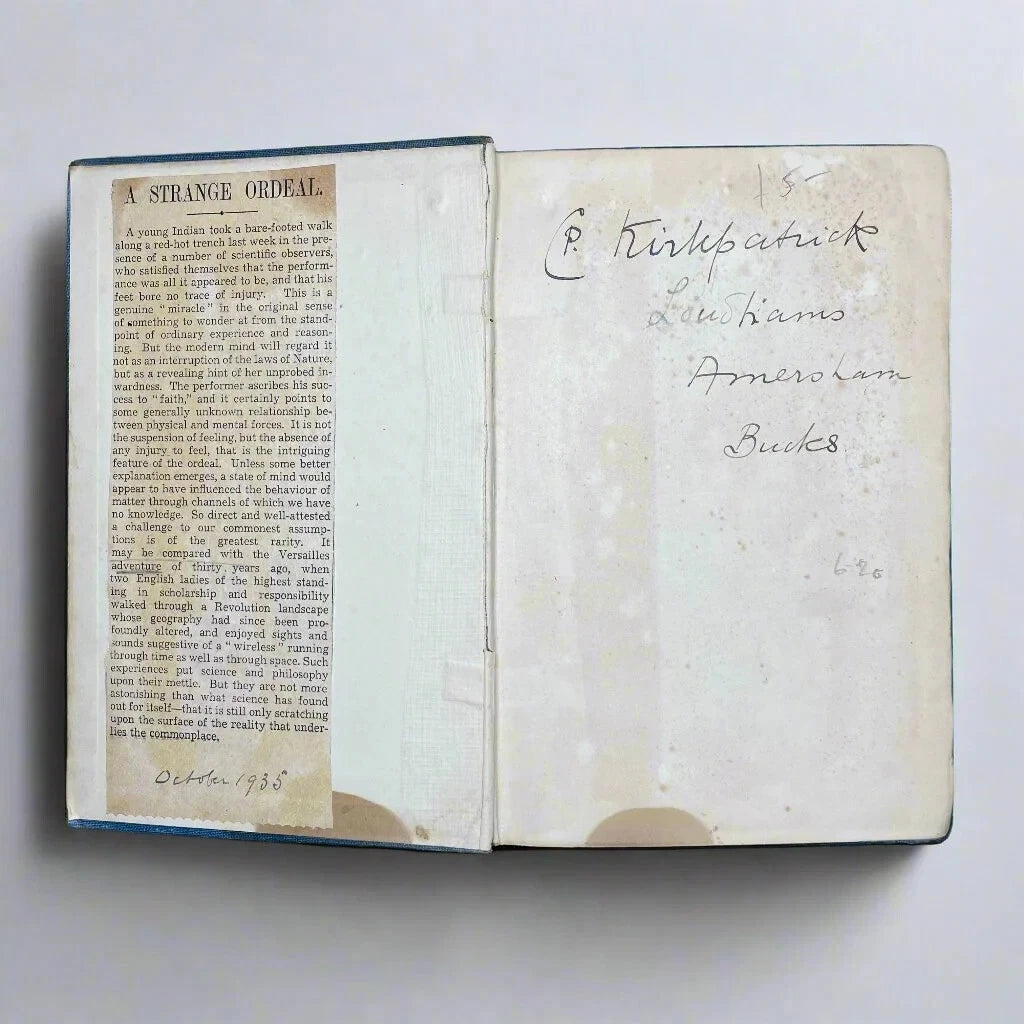 A STRANGE ORDEAL.
A young Indian took a bare-footed walk
along a red-hot trench last week in the pre-
sence of a number of scientific observers,
who satisfied themselves that the perform-
ance was all it appeared to be, and that his
feet bore no trace of injury. This is a
genuine "miracle" in the original sense
of something to wonder at from the stand-
point of ordinary experience and reason-
ing. But the modern mind will regard it
not as an interruption of the laws of Nature,
but as a revealing hint of her unprobed in-
wardness. The performer ascribes his suc-
cess to "faith," and it certainly points to
some generally unknown relationship be-
tween physical and mental forces. It is not
the suspension of feeling, but the absence of
any injury to feel, that is the intriguing
feature of the ordeal. Unless some better
explanation emerges, a state of mind would
appear to have influenced the behaviour of
matter through channels of which we have
no knowledge. So direct and well-attested
a challenge to our commonest assump-
tions is of the greatest rarity. It
may be compared with the Versailles
adventure of thirty years ago, when
two English ladies of the highest stand-
ing in scholarship and responsibility
walked through a Revolution landscape
whose geography had since been pro-
foundly altered, and enjoyed sights and
sounds suggestive of a "wireless" running
through time as well as through space. Such
experiences put science and philosophy
upon their mettle. But they are not more
astonishing than what science has found
out for itself—that it is still only scratching
upon the surface of the reality that under-
lies the commonplace.
October 1935
P. Kirkpatrick
Amersham
Bucks